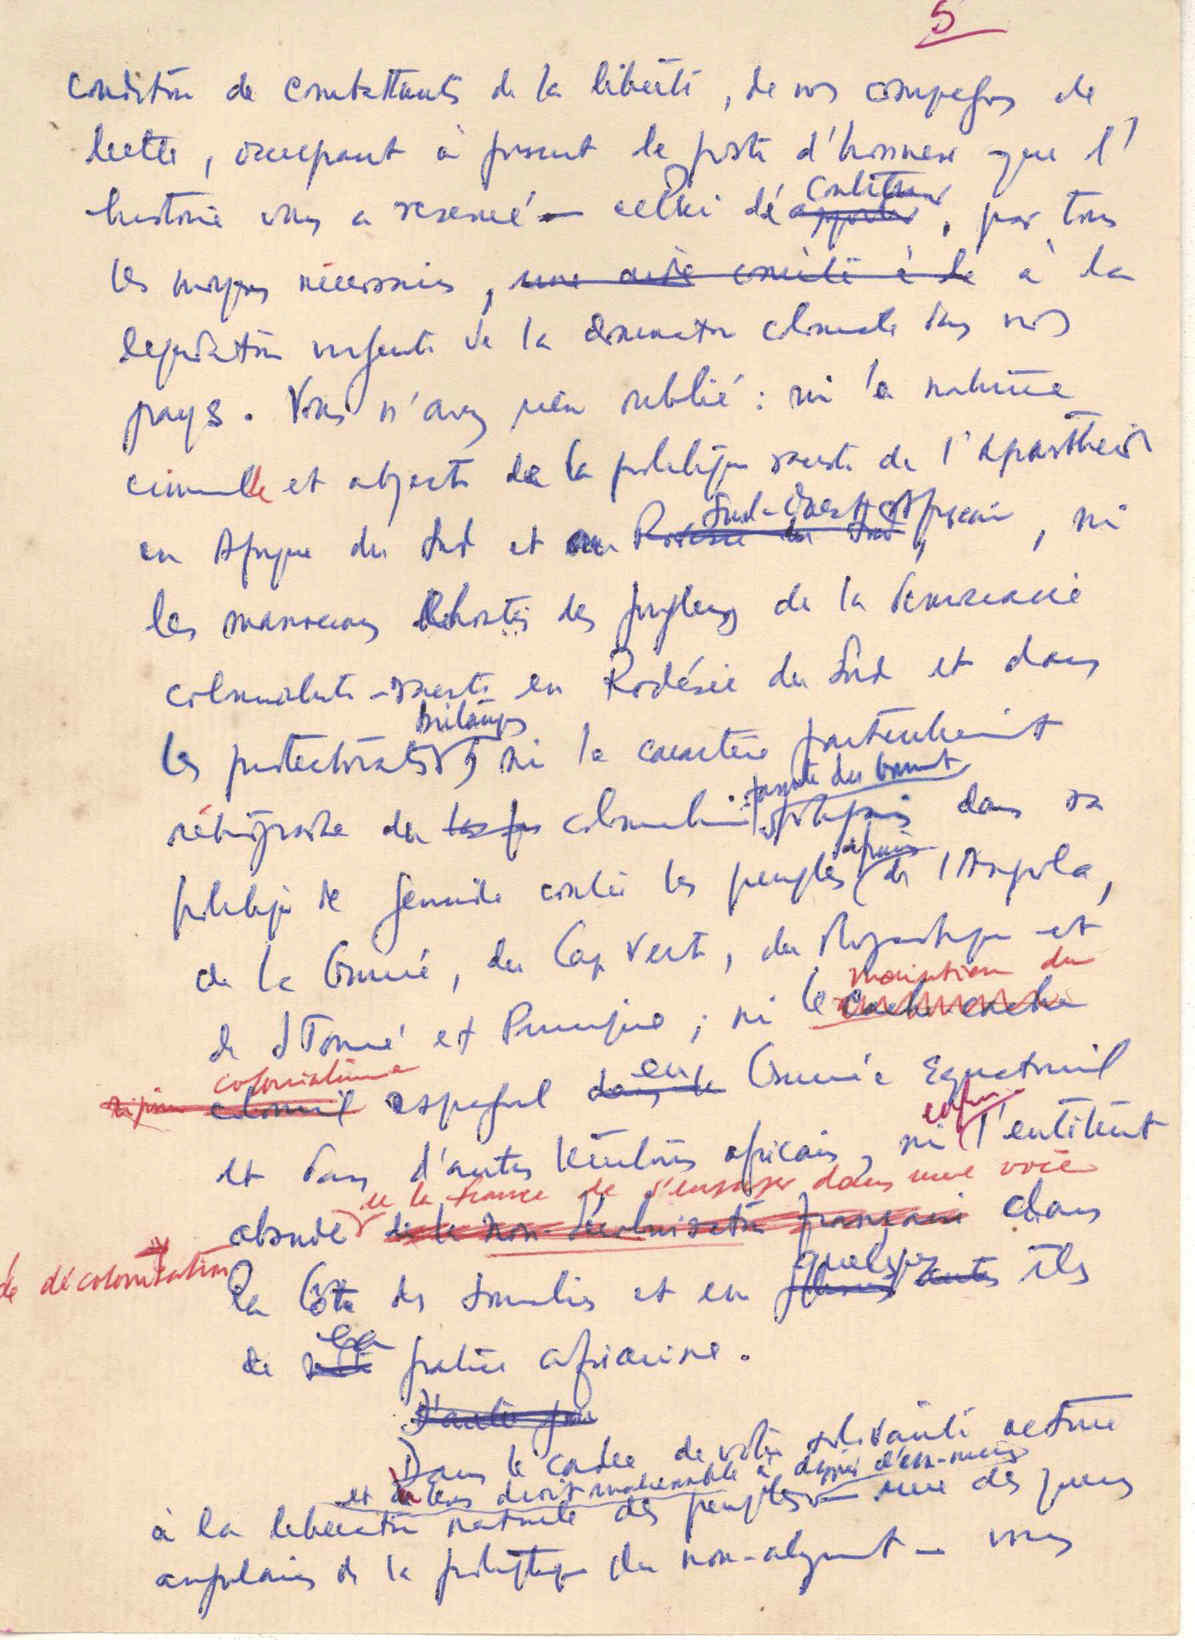 5
condition de combattants de la liberté, de nos compagnons de
lutte, occupant à présent le poste d'honneur que l'
histoire vous a réservé — celui de contribuer
apporter, par tous
les moyens nécessaires, une aide concrète à la à la
liquidation urgente de la domination coloniale dans nos
pays. Vous n'avez rien oublié : ni la nature
criminelle et abjecte de la politique raciste de l'Apartheid
Sud-Ouest Africain
en Afrique du Sud et au Rodésie du Sud, ni
les manœuvres des jongleurs de la démocratie
colonialiste-raciste en Rodésie du Sud et dans
britaniques
les protectorats, ni le caractère particulièrement
rétrograde du colonialisme portugais dans sa
politique de génocide contre les peuples
africains
de l'Angola,
de la Guinée, du Cap Vert, du Mozambique et
maintien du
de S Tomé et Principe ; ni le
colonialisme
colonial espagnol en
dans la Guinée Equatorial
enfin
et dans d'autres territoires africains, ni l'entêtement
de la France de s'engager dans une voie
absurde de la non-décolonisation française dans
de décolonisation
quelques
la Côte des Somalies et en autres îles
la
de patrie africaine.
D'autre part
Dans le cadre de votre solidarité active
et leur droit inalienable à disposer d'eux-mêmes
à la libération nationale des peuples — une des pierres
angulaires de la politique du non-alignement — vous